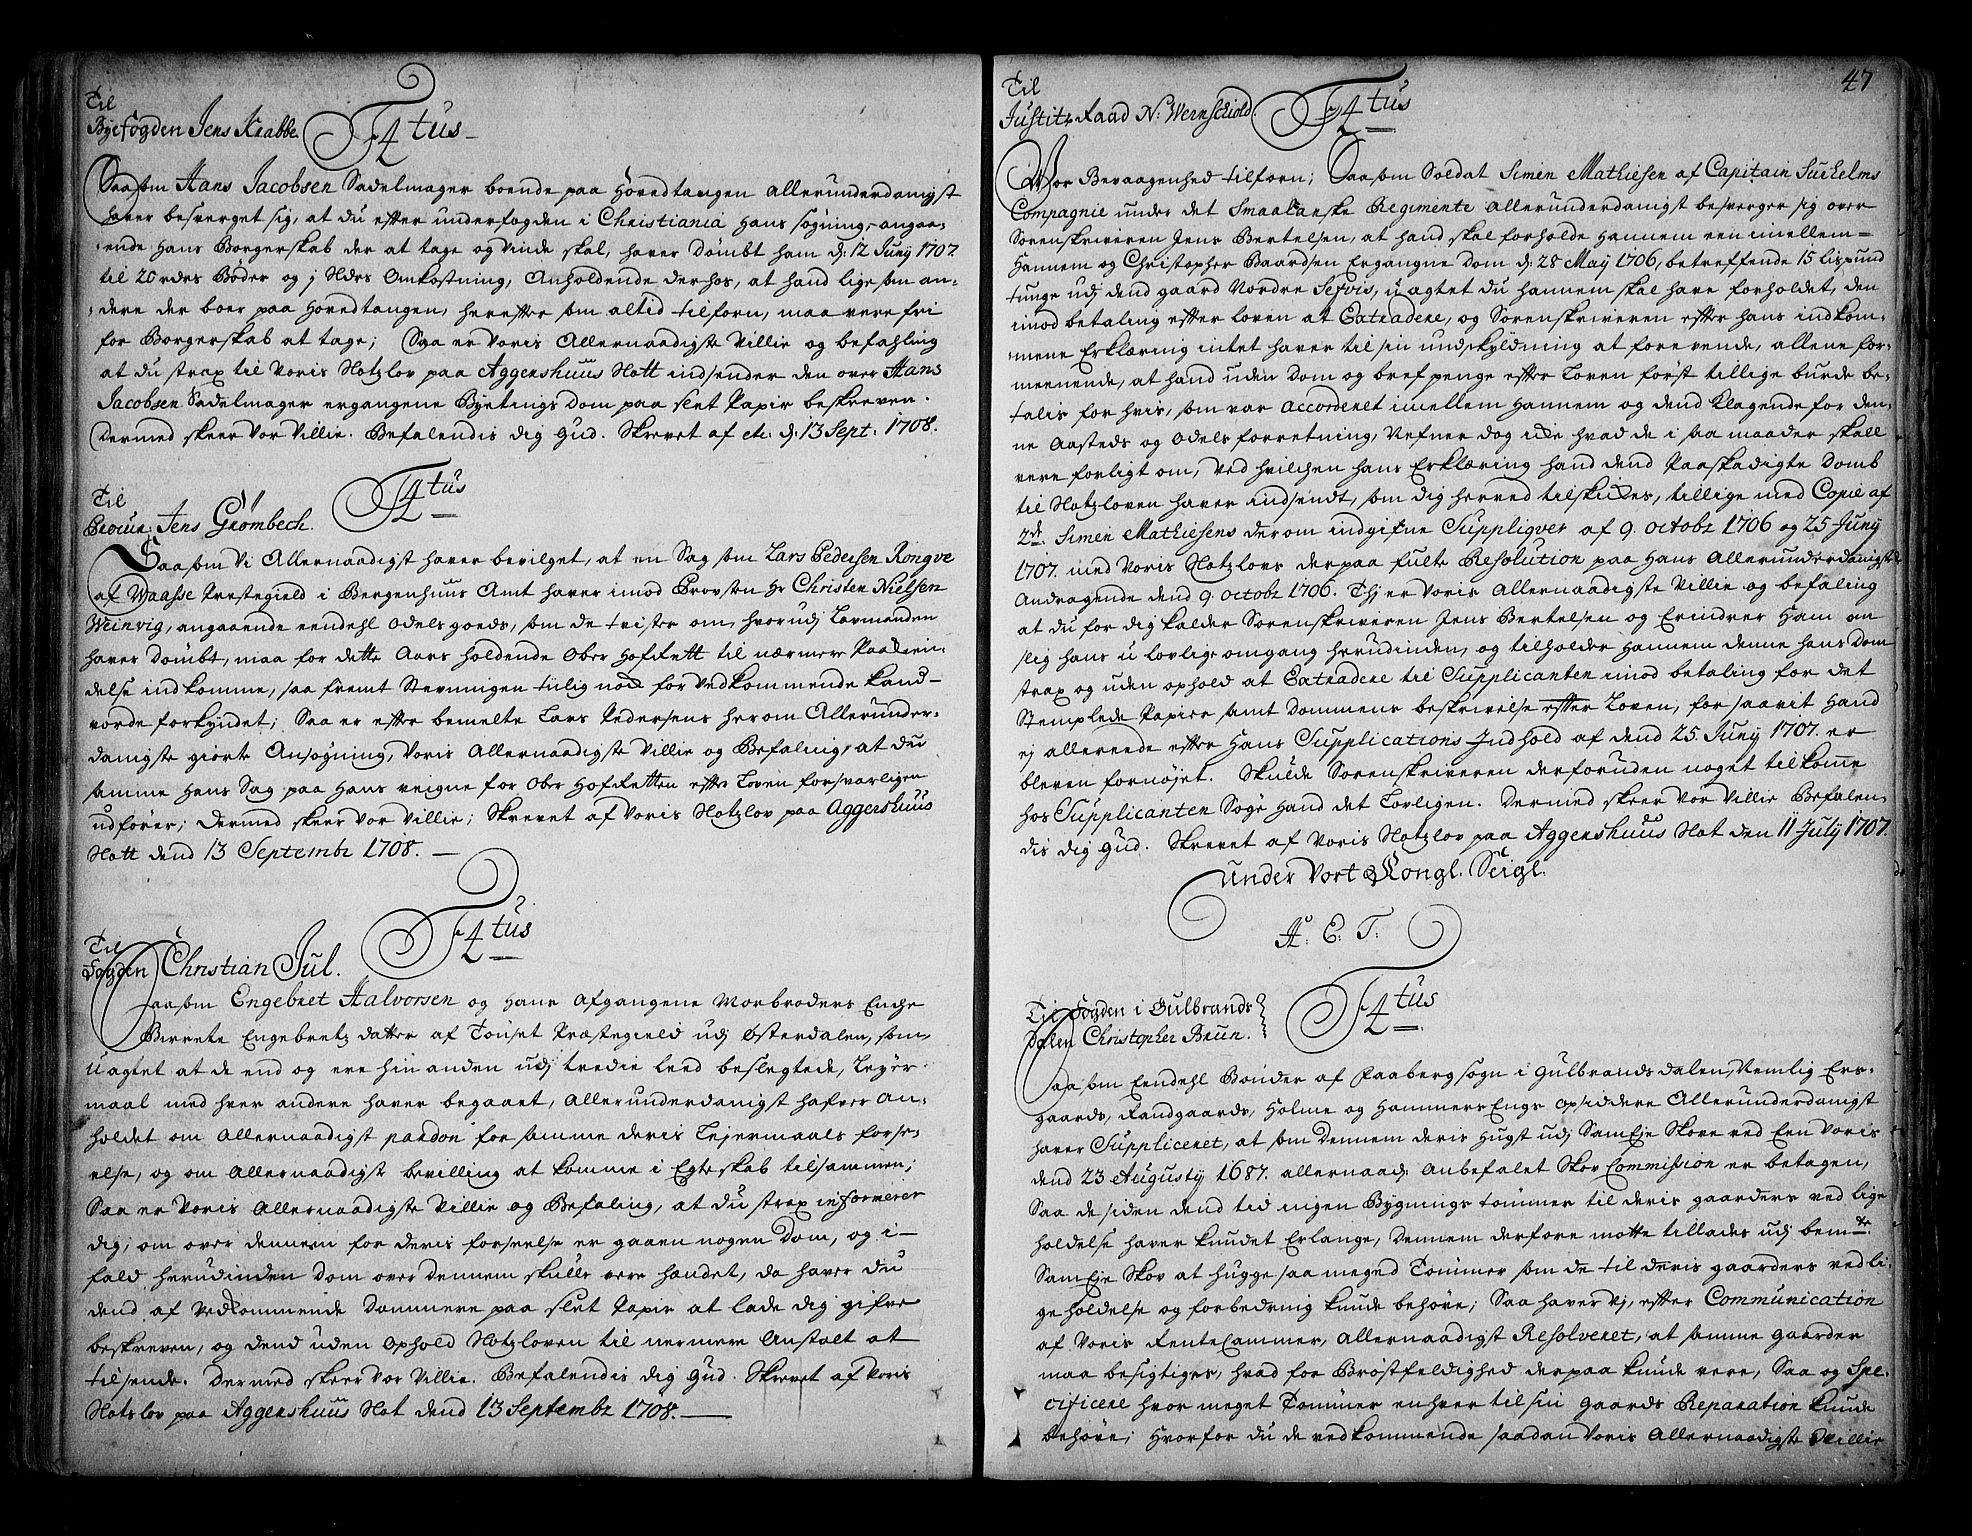 Til
Byefogden Jens Krabbe. F4tus
Saasom Hans Jacobsen Sadelmager boende paa Hovedtangen allerunderdanigst
haver besverget sig, at du efter underfogden i Christiania hans søgning, angaa-
ende hans Borgerskab der at tage og vinde skal, haver dömbt ham d: 12 Juny 1707
til 20 rdrs Bøder og j Rdrs Omkostning, Anholdende derhos, at hand ligesom an-
dere der boer paa Hovedtangen, herefter som altid tilforn, maa vere fri
for Borgerskab at tage; Saa er Voris Allernaadigste Villie og befahling
at du strax til Voris Slotzlov paa Aggershuus Slott indsender den over Hans
Jacobsen Sadelmager ergangene Byetings Dom paa slet Papir beskreven.
Dermed skeer Vor Villie. Befalendis dig Gud. Skrevet af etc. d: 13 Sept: 1708.
Til
Procur: Jens Grömbech. F4tus
Saasom Vi Allernaadigst haver bevilget, at en Sag som Lars Pedersen Rongve
af Waasse Prestegield i Bergenhuus Amt haver imod Provsten Hr Christen Nielsen
Weinvig, angaaende eendehl Odels goeds, som de tvister om, hvorudj Lavmanden
haver dömbt, maa for dette Aars holdende Ober HofRett til nærmere Paakien-
delse indkomme, saa fremt Stevningen tilig nock for Vedkommende kand
vorde forkyndet; Saa er efter bemelte Lars Pedersens herom Allerunder-
danigste giorte Ansøgning, Voris Allernaadigste Villie og Befaling, at du
samme hans Sag paa hans veigne for Ober HofRetten efter Loven forsvarligen
udfører; Dermed skeer Vor Villie; Skrevet af Voris Slotzlov paa Aggershuus
Slott dend 13 Septembr 1708.
Til
Fogden Christian Jul. F4tus
Saasom Engebret Halvorsen og hans Afgangene Morbroders Enche
Berrete Engebretz datter af Tonset Præstegield udj Østerdalen, som
uagtet at de end og ere hin anden udj tredie leed beslegtede, Lejer-
maal med hver andere haver begaaet, allerunderdanigst hafver An-
holdet om allernaadigst pardon for samme deris Lejermaals forse-
else, og om allernaadigste bevilling at komme i Egteskab tilsammen;
Saa er Voris Allernaadigste Villie og Befaling, at du strax informerer
dig, om over dennem for deris forseelse er gaaen nogen Dom, og i-
fald herudinden Dom over Dennem skulle vere hændet, da haver du
dend af Vedkommende Dommere paa slet Papir at lade dig gifve
beskreven, og dend uden Ophold Slotzloven til nermere Anstalt at
tilsende. Dermed skeer Vor Villie. Befalendis dig Gud. Skrevet af Voris
Slotzlov paa Aggershuus Slot dend 13 Septembr 1708.
47
Til
Justitz Raad N: Wernschiold. F4tus
Vor Bevaagenhed tilforn; Saasom Soldat Simen Mathiesen af Capitain
Compagnie under det Smaalanske Regimente allerunderdanigst besverger sig over
Sorenskriveren Jens Bertelsen, at hand skal forholde hannem een imellem
hannem og Christopher Baardsen Ergangne Dom d: 28 May 1706, betreffende 15 lispund
tunge udj dend gaard Nordre Sefvis, uagtet du hannem skal have forholdet, den
imod betaling efter loven at Extradere, og Sorenskriveren efter hans indkom-
mene Erklæring intet haver til sin undskyldning at forevende, allene for-
meenende, at hand uden Dom og bref penge efter Loven først tillige burde be-
talis for hvis, som var accorderet imellem hannem og dend Klagende for den-
ne Aasteds og Odels forretning, Nefner dog icke hvad de i saa maader skall
vere forligt om, ved hvilchen hans Erklæring hand dend Paaskadigte Domb
til Slotzloven haver indsendt, som dig herved tilskickes, tillige med Copie af
2de Simen Mathiesens derom indgifne Suppliqver af 9. octobr 1706 og 25 Juny
1707. med Voris Slotzlovs derpaa fulte Resolution paa hans Allerunderdanigste
Andragende dend 9. octobr 1706. Thj er Voris Allernaadigste Villie og befaling
at du for dig kalder Sorenskriveren Jens Bertelsen og Erindrer ham om
slig hans ulovlige omgang herudinden, og tilholder hannem denne hans Dom
strax og uden ophold at Extradere til Supplicanten imod betaling for det
Stemplede Papier samt Dommens beskrivelse efter Loven, for saavit hand
ej allereede efter hans Supplications Indhold af dend 25. Juny 1707. er
bleven fornøjet. Skulde Sorenskriveren derforuden noget tilkomme
hos Supplicanten Søge hand det Lovligen. Dermed skeer Vor Villie Befalen-
dis dig Gud. Skrevet af Voris Slotzlov paa Aggershuus Slot den 11 July 1707.
under Vort Kongl. Seigl.
A: E: T:
Til Fogden i Gulbrands
Dalen Christopher Brun. F4tus
Saasom Eendehl Bønder af Faaberg sogn i Gulbrandsdalen, Nemlig Ers-
gaards, Randgaards, Holme og Hammers Engs opsiddere Allerunderdanigst
haver Suppliceret, at som Dennem deris Hugst udj SamEje Skove ved Een Voris
dend 23 Augusty 1687. allernaad: Anbefalet Skov Commission er betagen,
Saa de siden dend tid ingen Bygnings tømmer til deris gaarders vedlige
holdelse haver kundet Erlange, Dennem derfore motte tillades udj bemte
SamEje Skov at hugge saa meged Tømmer som de til deris gaarders vedli-
geholdelse og forbedring kunde behøve; Saa haver Vj, efter Communication
af Voris RenteCammer, allernaadigst Resolveret, at samme gaarder
maa besigtiges, hvad for Brøstfeldighed derpaa kunde vere, Saa og Spe-
cificere hvor meget Tømmer enhver til sin gaards Reparation kunde
behøve; Hvorfor du de vedkommende saadan Voris Allernaadigste Villie